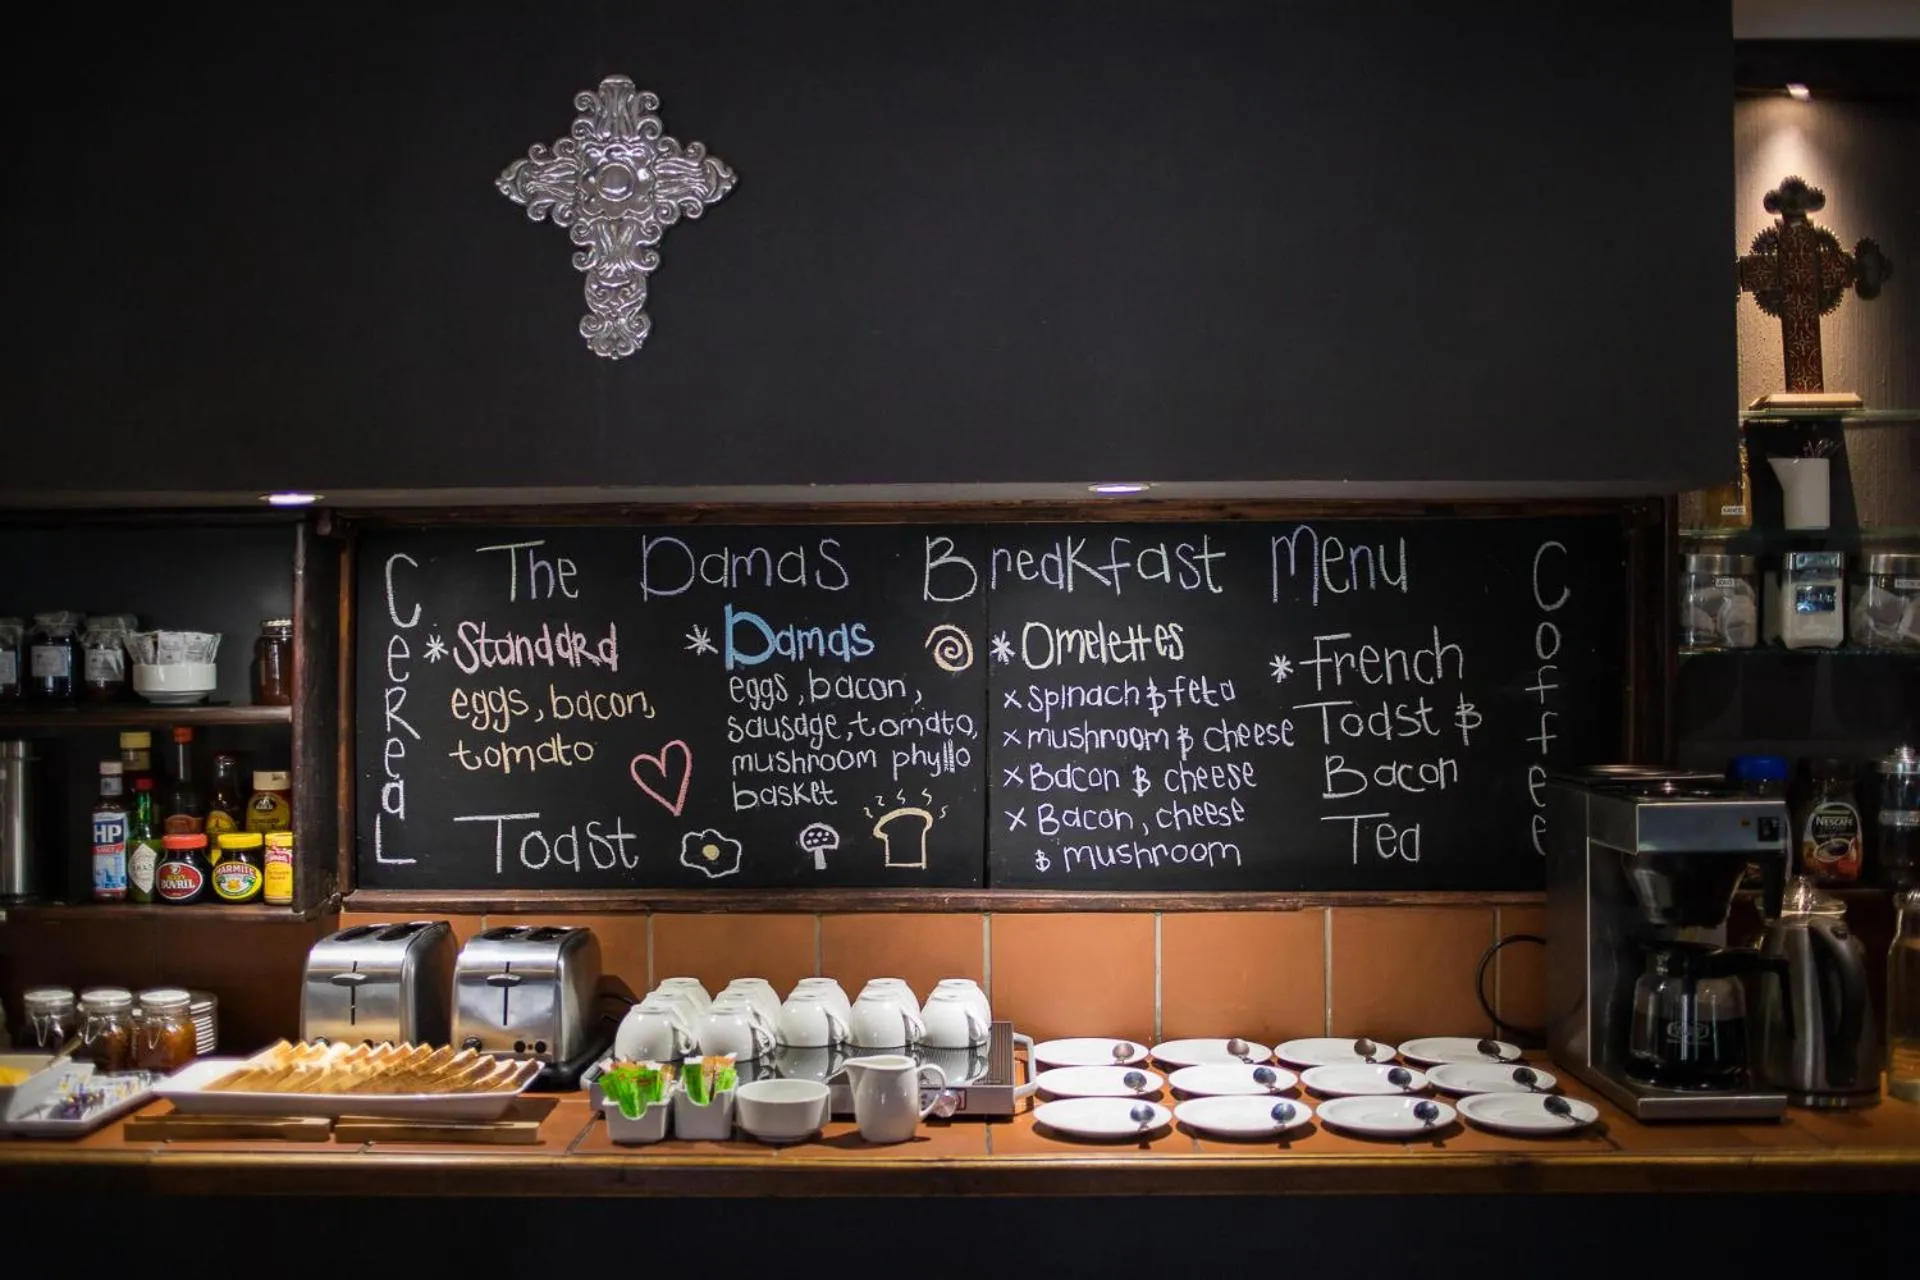 The Damas Breakfast Menu
Cereal
* Standard
eggs, bacon,
tomato
Toast
* Damas
eggs, bacon,
sausage, tomato,
mushroom phyllo
basket
* Omelettes
x spinach & feta
x mushroom & cheese
x Bacon & cheese
x Bacon, cheese
& mushroom
* French
Toast &
Bacon
Tea
Coffee
HP
BOVRIL
MARMITE
NESCAFÉ